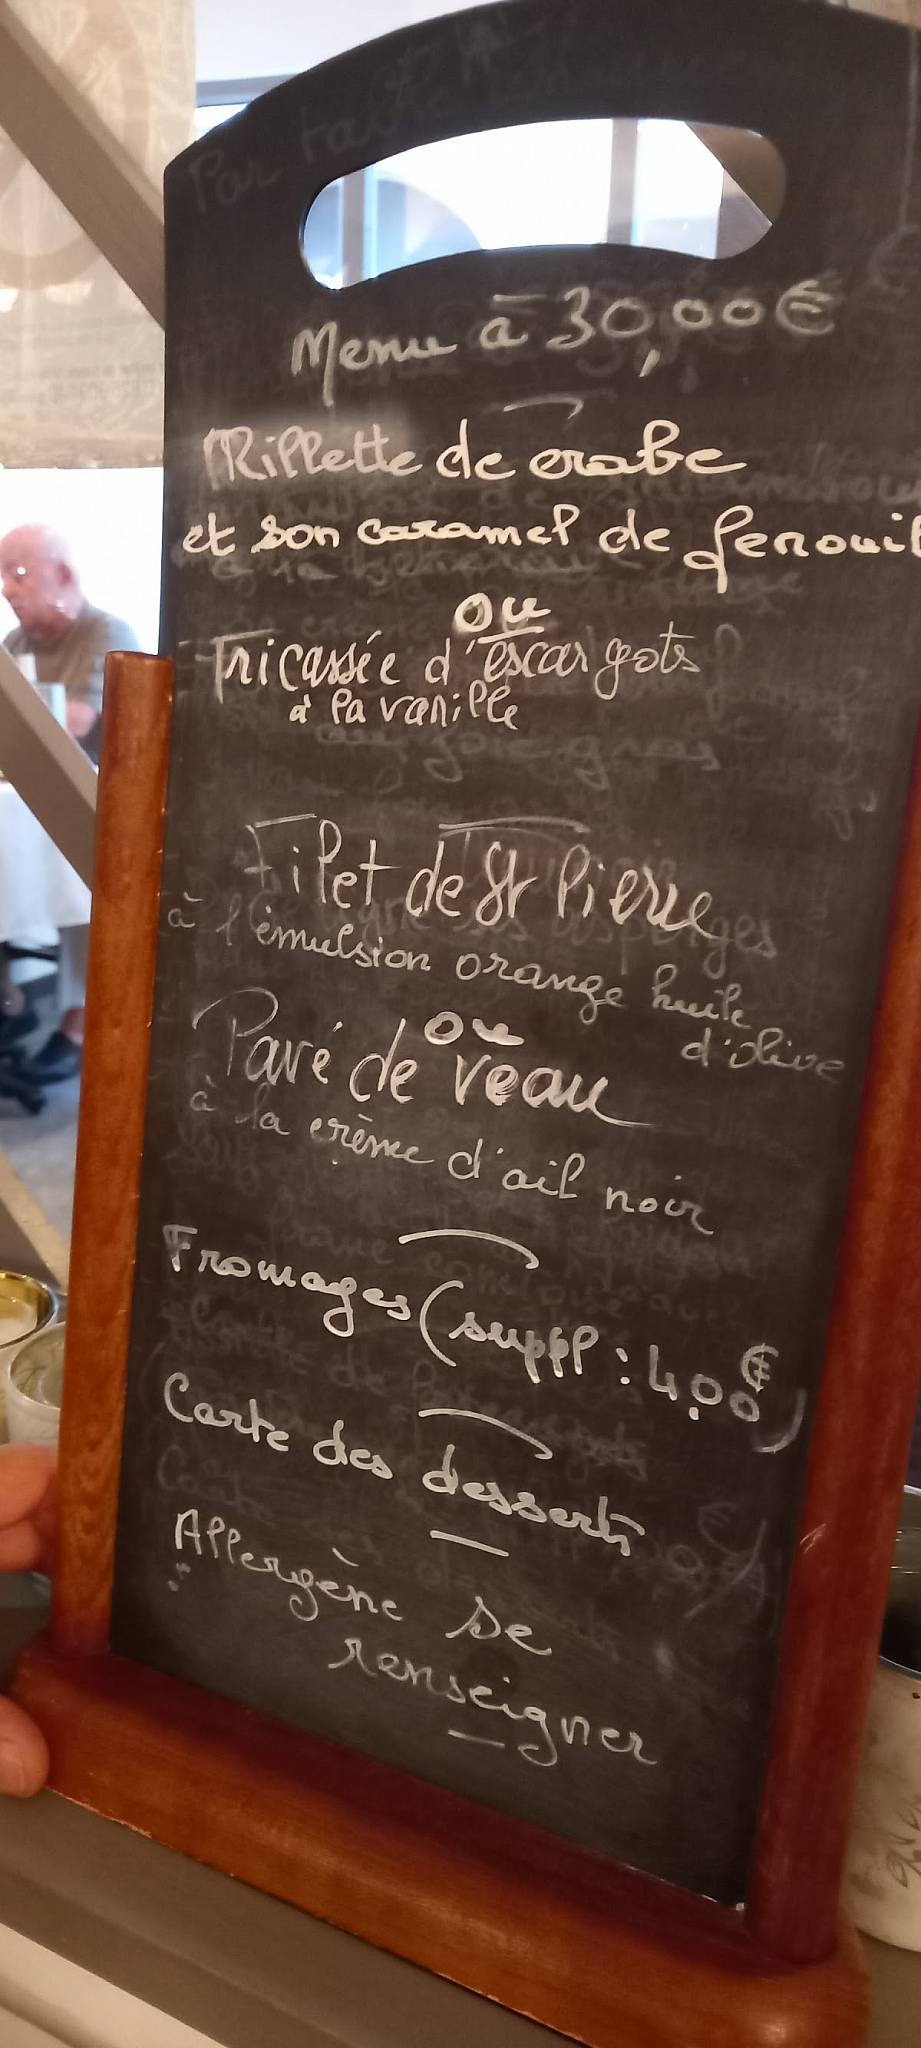 Menu à 30,00€
Rillette de crabe
et son caramel de fenouil
ou
Fricassée d'escargots
à la vanille
Filet de St Pierre
à l'émulsion orange huile
d'olive
ou
Pavé de veau
à la crème d'ail noir
Fromages (suppl : 4,00€)
Carte des desserts
Allergène se
renseigner